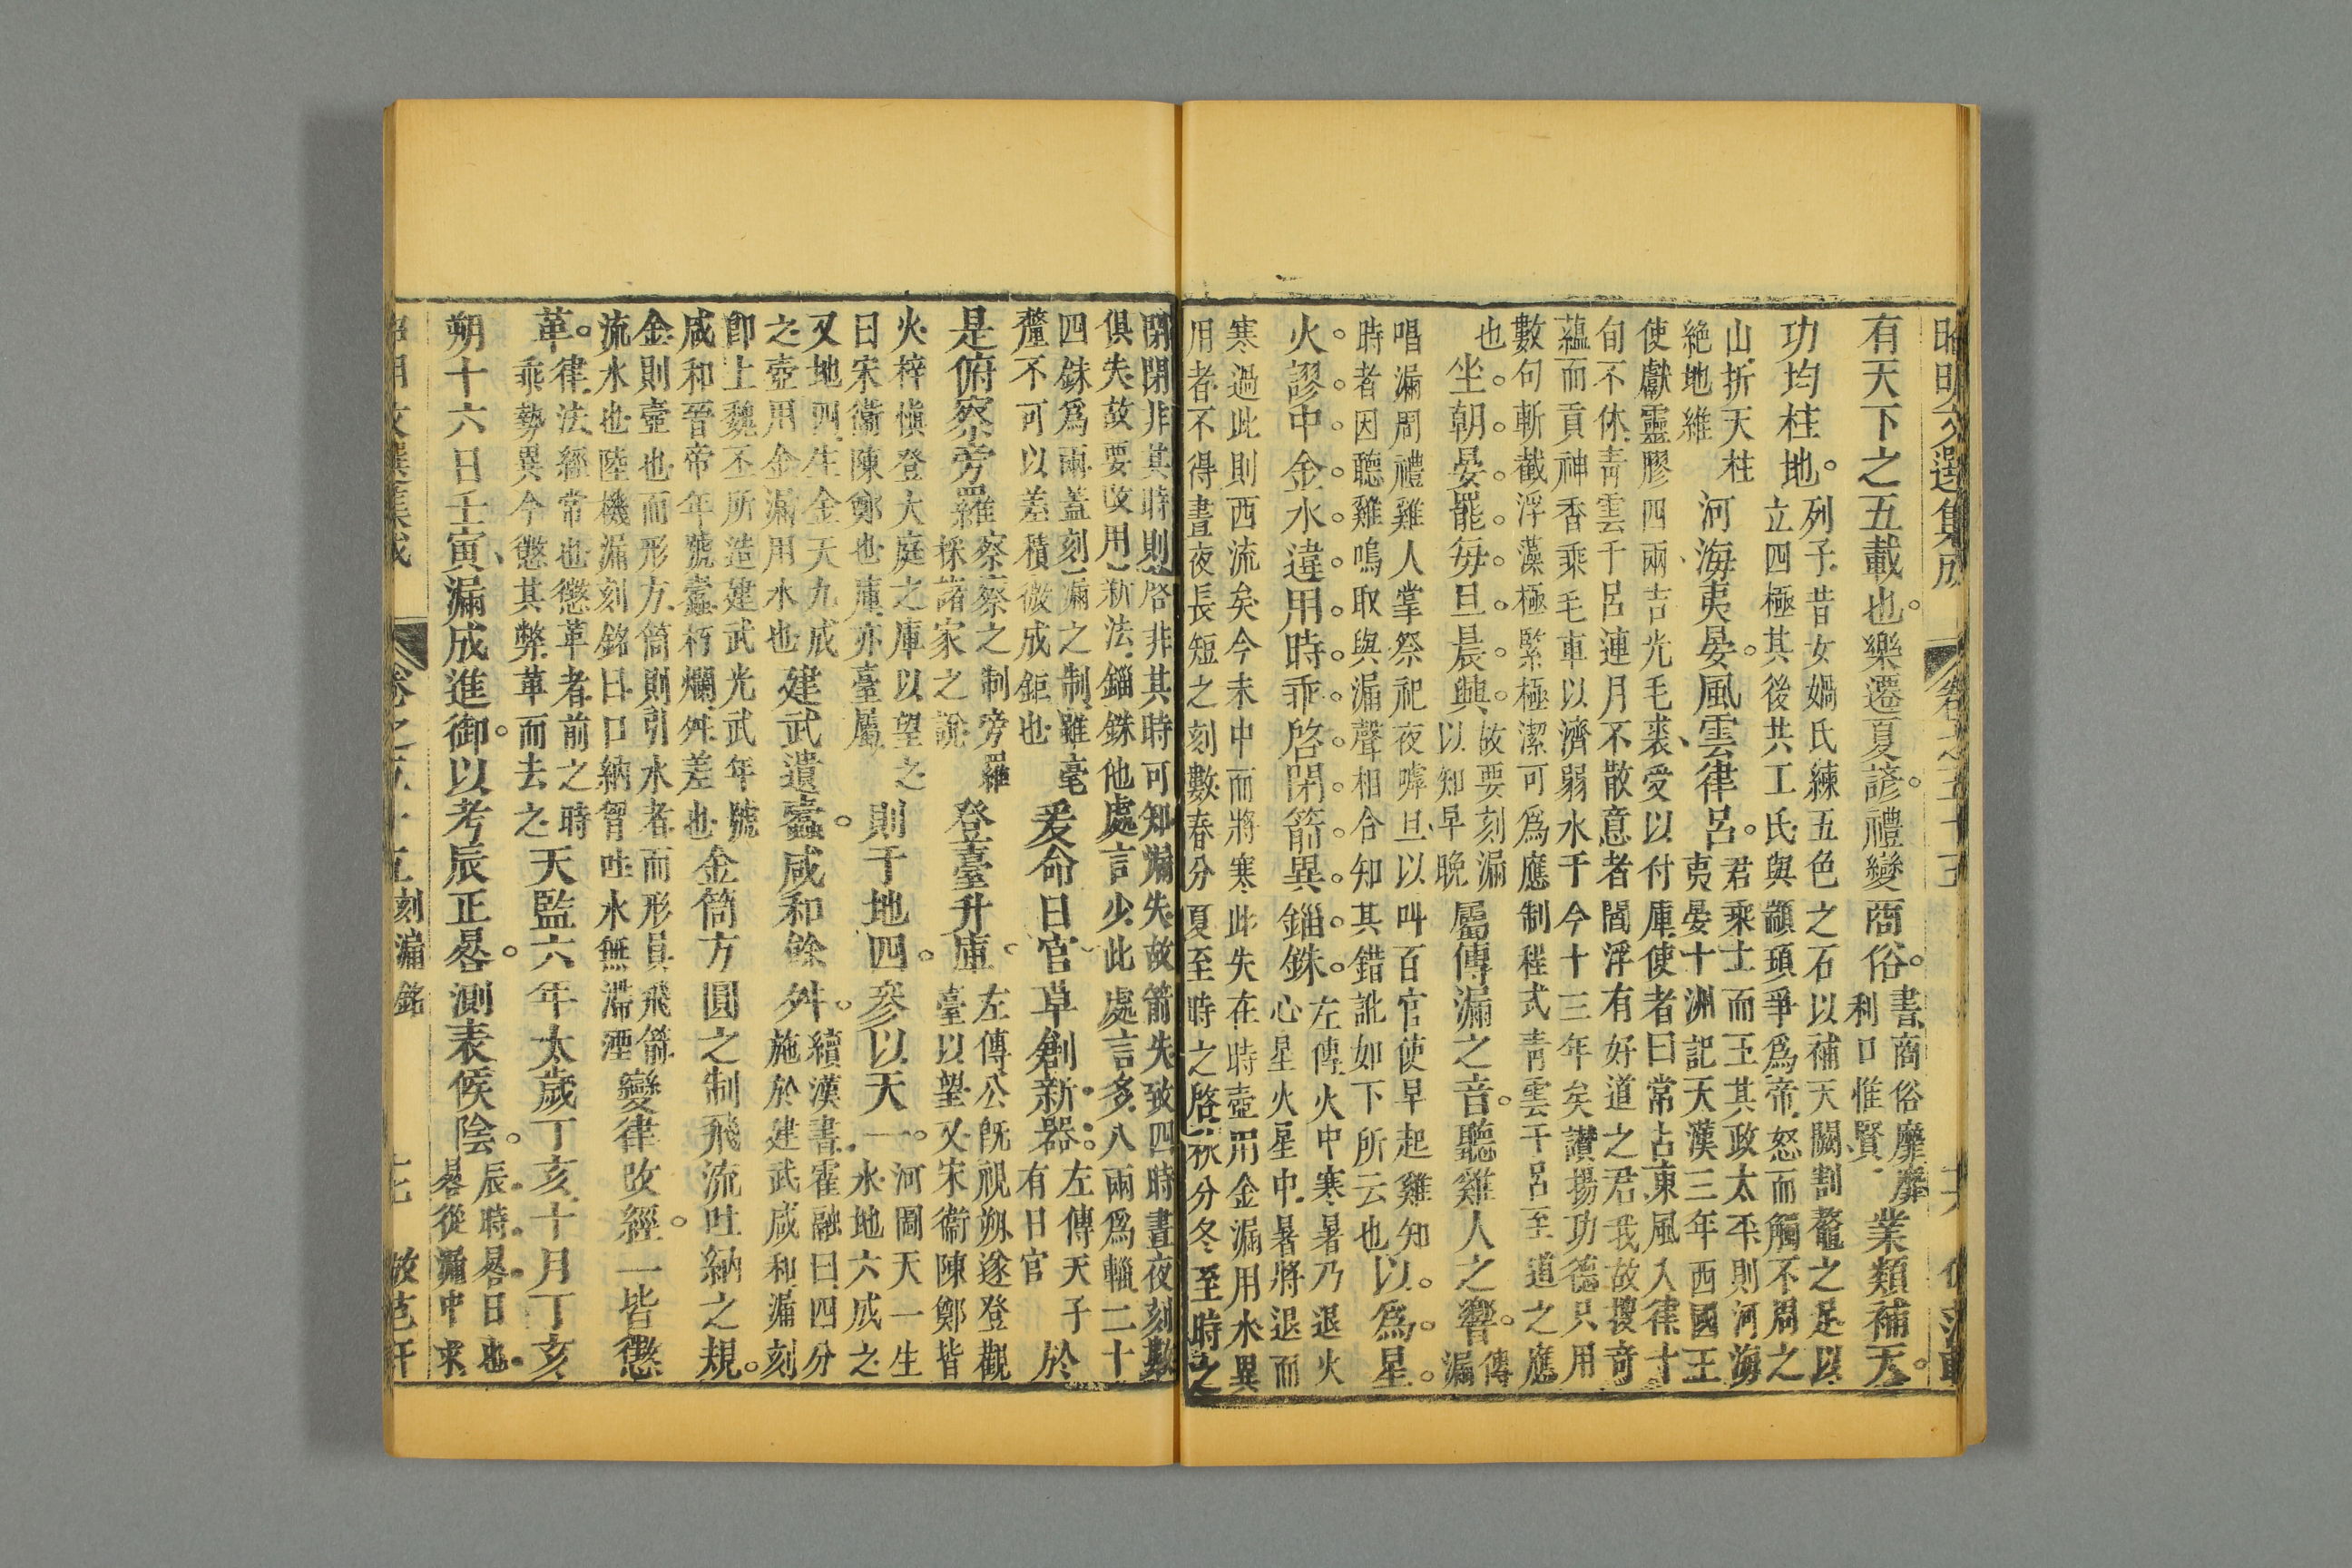 昭明文選集成 卷之五十五 十六
有天下之五載也樂遷夏諺禮變商俗
書商俗靡靡
利口惟賢
業類補天
功均柱地
列子昔女媧氏練五色之石以補天闕割鼇之足以
立四極其後共工氏與顓頊爭爲帝怒而觸不周之
山折天柱
絶地維
河海夷晏風雲律呂
君乘土而王其政太平則河海
夷晏十洲記天漢三年西國王
使獻靈膠四兩吉光毛裘受以付庫使者曰常占東風入律十
旬不休青雲干呂連月不散意者閻浮有好道之君我故搜奇
蘊而貢神香乘毛車以濟弱水于今十三年矣讃揚功德只用
數句斬截浮藻極緊極潔可爲應制程式青雲干呂至道之應
也
坐朝晏罷每旦晨興
故要刻漏
以知早晚
屬傳漏之音聽雞人之響
傳
漏
唱漏周禮雞人掌祭祀夜嘑旦以叫百官使早起雞知
時者因聽雞鳴取與漏聲相合知其錯訛如下所云也
以爲星
火謬中金水違用時乖啓閉箭異錙銖
左傳火中寒暑乃退火
心星火星中暑將退而
寒過此則西流矣今未中而將寒此失在時壺用金漏用水異
用者不得晝夜長短之刻數春分夏至時之啓秋分冬至時之
閉閉非其時則啓非其時可知漏失故箭失致四時晝夜刻數
俱失故要改用新法錙銖他處言少此處言多八兩爲輜二十
四銖爲兩蓋刻漏之制雖毫
釐不可以差積微成鉅也
爰命日官草創新器
左傳天子
有日官
於
是俯察旁羅
察察之制旁羅
採諸家之說
登臺升庫
左傳公旣視朔遂登觀
臺以望又宋衞陳鄭皆
火梓愼登大庭之庫以望之
曰宋衞陳鄭也庫亦臺屬
則于地四參以天一
河圖天一生
水地六成之
又地四生金天九成
之壺用金漏用水也
建武遺蠹咸和餘舛
續漢書霍融曰四分
施於建武咸和漏刻
卽上魏丕所造建武光武年號
咸和晉帝年號蠹朽爛舛差也
金筒方圓之制飛流吐納之規
金則壺也而形方筒則引水者而形員飛箭
流水也陸機漏刻銘曰口納胷吐水無滯湮
變律改經一皆懲
革
律法經常也懲革者前之時
乖勢異今懲其弊革而去之
天監六年太歲丁亥十月丁亥
朔十六日壬寅漏成進御以考辰正晷測表候陰
辰時晷日也
晷從漏中求
昭明文選集成 卷之五十五 刻漏銘 十七 倣范軒